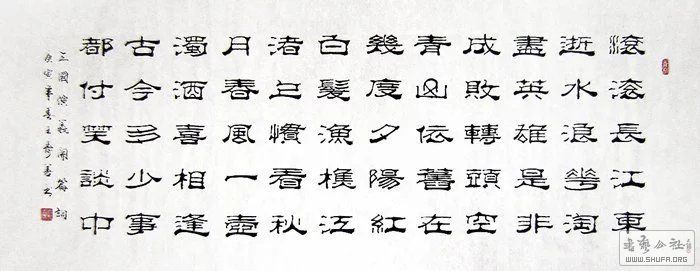 滾滾長江東
逝水浪華淘
盡英雄是非
成敗轉頭空
青山依舊在
幾度夕陽紅
白髮漁樵江
渚上慣看秋
月春風一壺
濁酒喜相逢
古今多少事
都付笑談中
三國演義開篇詞
庚寅年春王
书艺公社
WWW.SHUFA.ORG